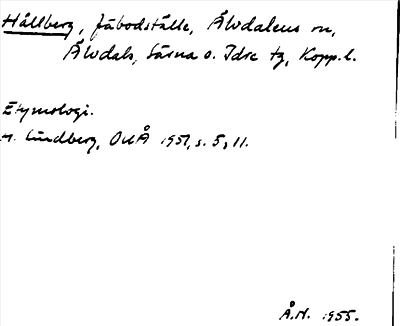 Hållberg, fäbodställe, Älvdalens sn,
Älvdals, Särna o. Idre tg, Kopp. l.
Etymologi.
H. Lindberg, OUÅ 1951, s. 5, 11.
Å.N. 1955.